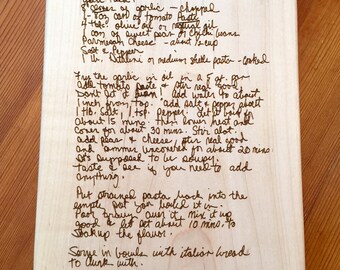 cloves of garlic - chopped
can of tomato paste
olive oil or
can of sweet peas or
Parmesan cheese - about ½ cup
Salt & Pepper
1 lb. or medium shells pasta - cooked
Fry the garlic in oil in a 5 qt. pan
Add tomato paste & stir real good.
Don't let it burn. Add water to about
1 inch from top. Add salt & pepper about
1 tsp. Pepper. Let it boil
about 15 mins. then lower heat and
cover for about 30 mins. Stir alot.
Add peas & cheese stir real good
and simmer uncovered for about 20 mins.
It's supposed to be soupy.
Taste & see if you need to add
anything.
Put strained pasta back into the
empty pot you boiled it in.
Pour gravy over it, mix it up
good & let set about 10 mins. to
soak up the flavor.
Serve in bowls with italian bread
to dunk with.